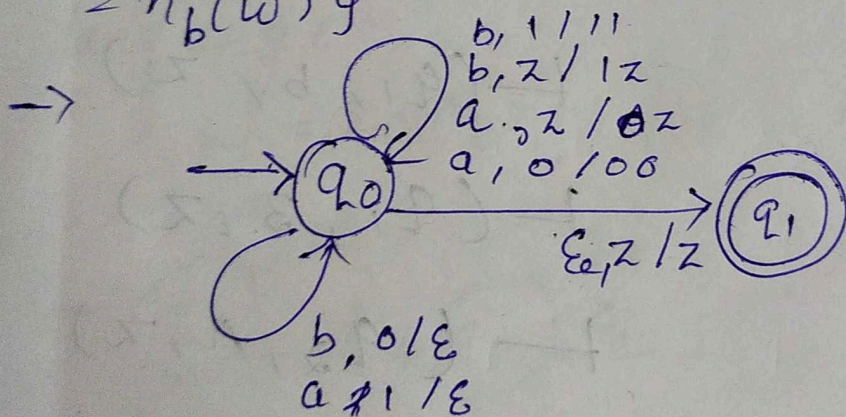 = n_b(w) }
b, 1 / 11
b, z / 1z
a, z / 0z
a, 0 / 00
→ q₀
q₁
ε, z / z
b, 0 / ε
a, 1 / ε